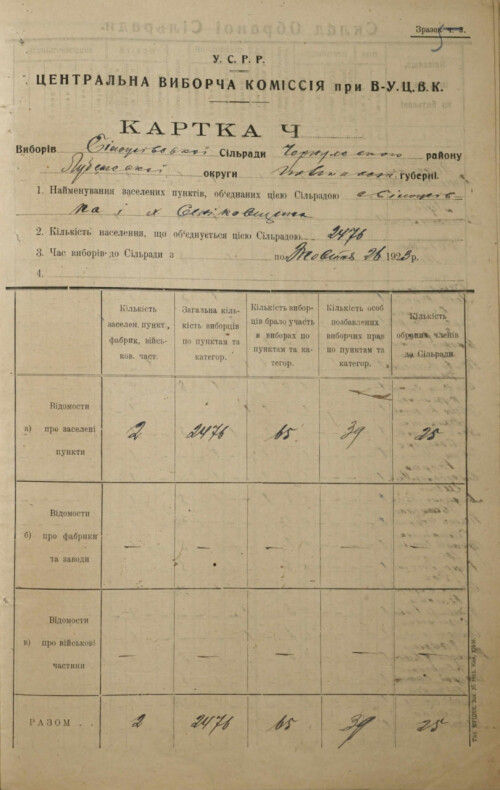 Зразок ч. 3.
У. С. Р. Р.
ЦЕНТРАЛЬНА ВИБОРЧА КОМІССІЯ при В-У.Ц.В.К.
КАРТКА Ч
Виборів Сільради району
Лубенської округи Полтавської губерні.
1. Найменування заселених пунктів, об'єднаних цією Сільрадою
2. Кількість населення, що об'єднується цією Сільрадою 2476
3. Час виборів до Сільради з по Жовтня 26 1923 р.
4.
Кількість заселен. пункт., фабрик, військов. част.
Загальна кількість виборців по пунктам та категор.
Кількість виборців брало участь в виборах по пунктам та категор.
Кількість особ позбавлених виборчих прав по пунктам та категор.
Кількість обраних членів до Сільради
а) Відомости про заселені пункти 2 2476 65 39 25
б) Відомости про фабрики та заводи — — — — —
в) Відомости про військові частини — — — — —
РАЗОМ . . 2 2476 65 39 25